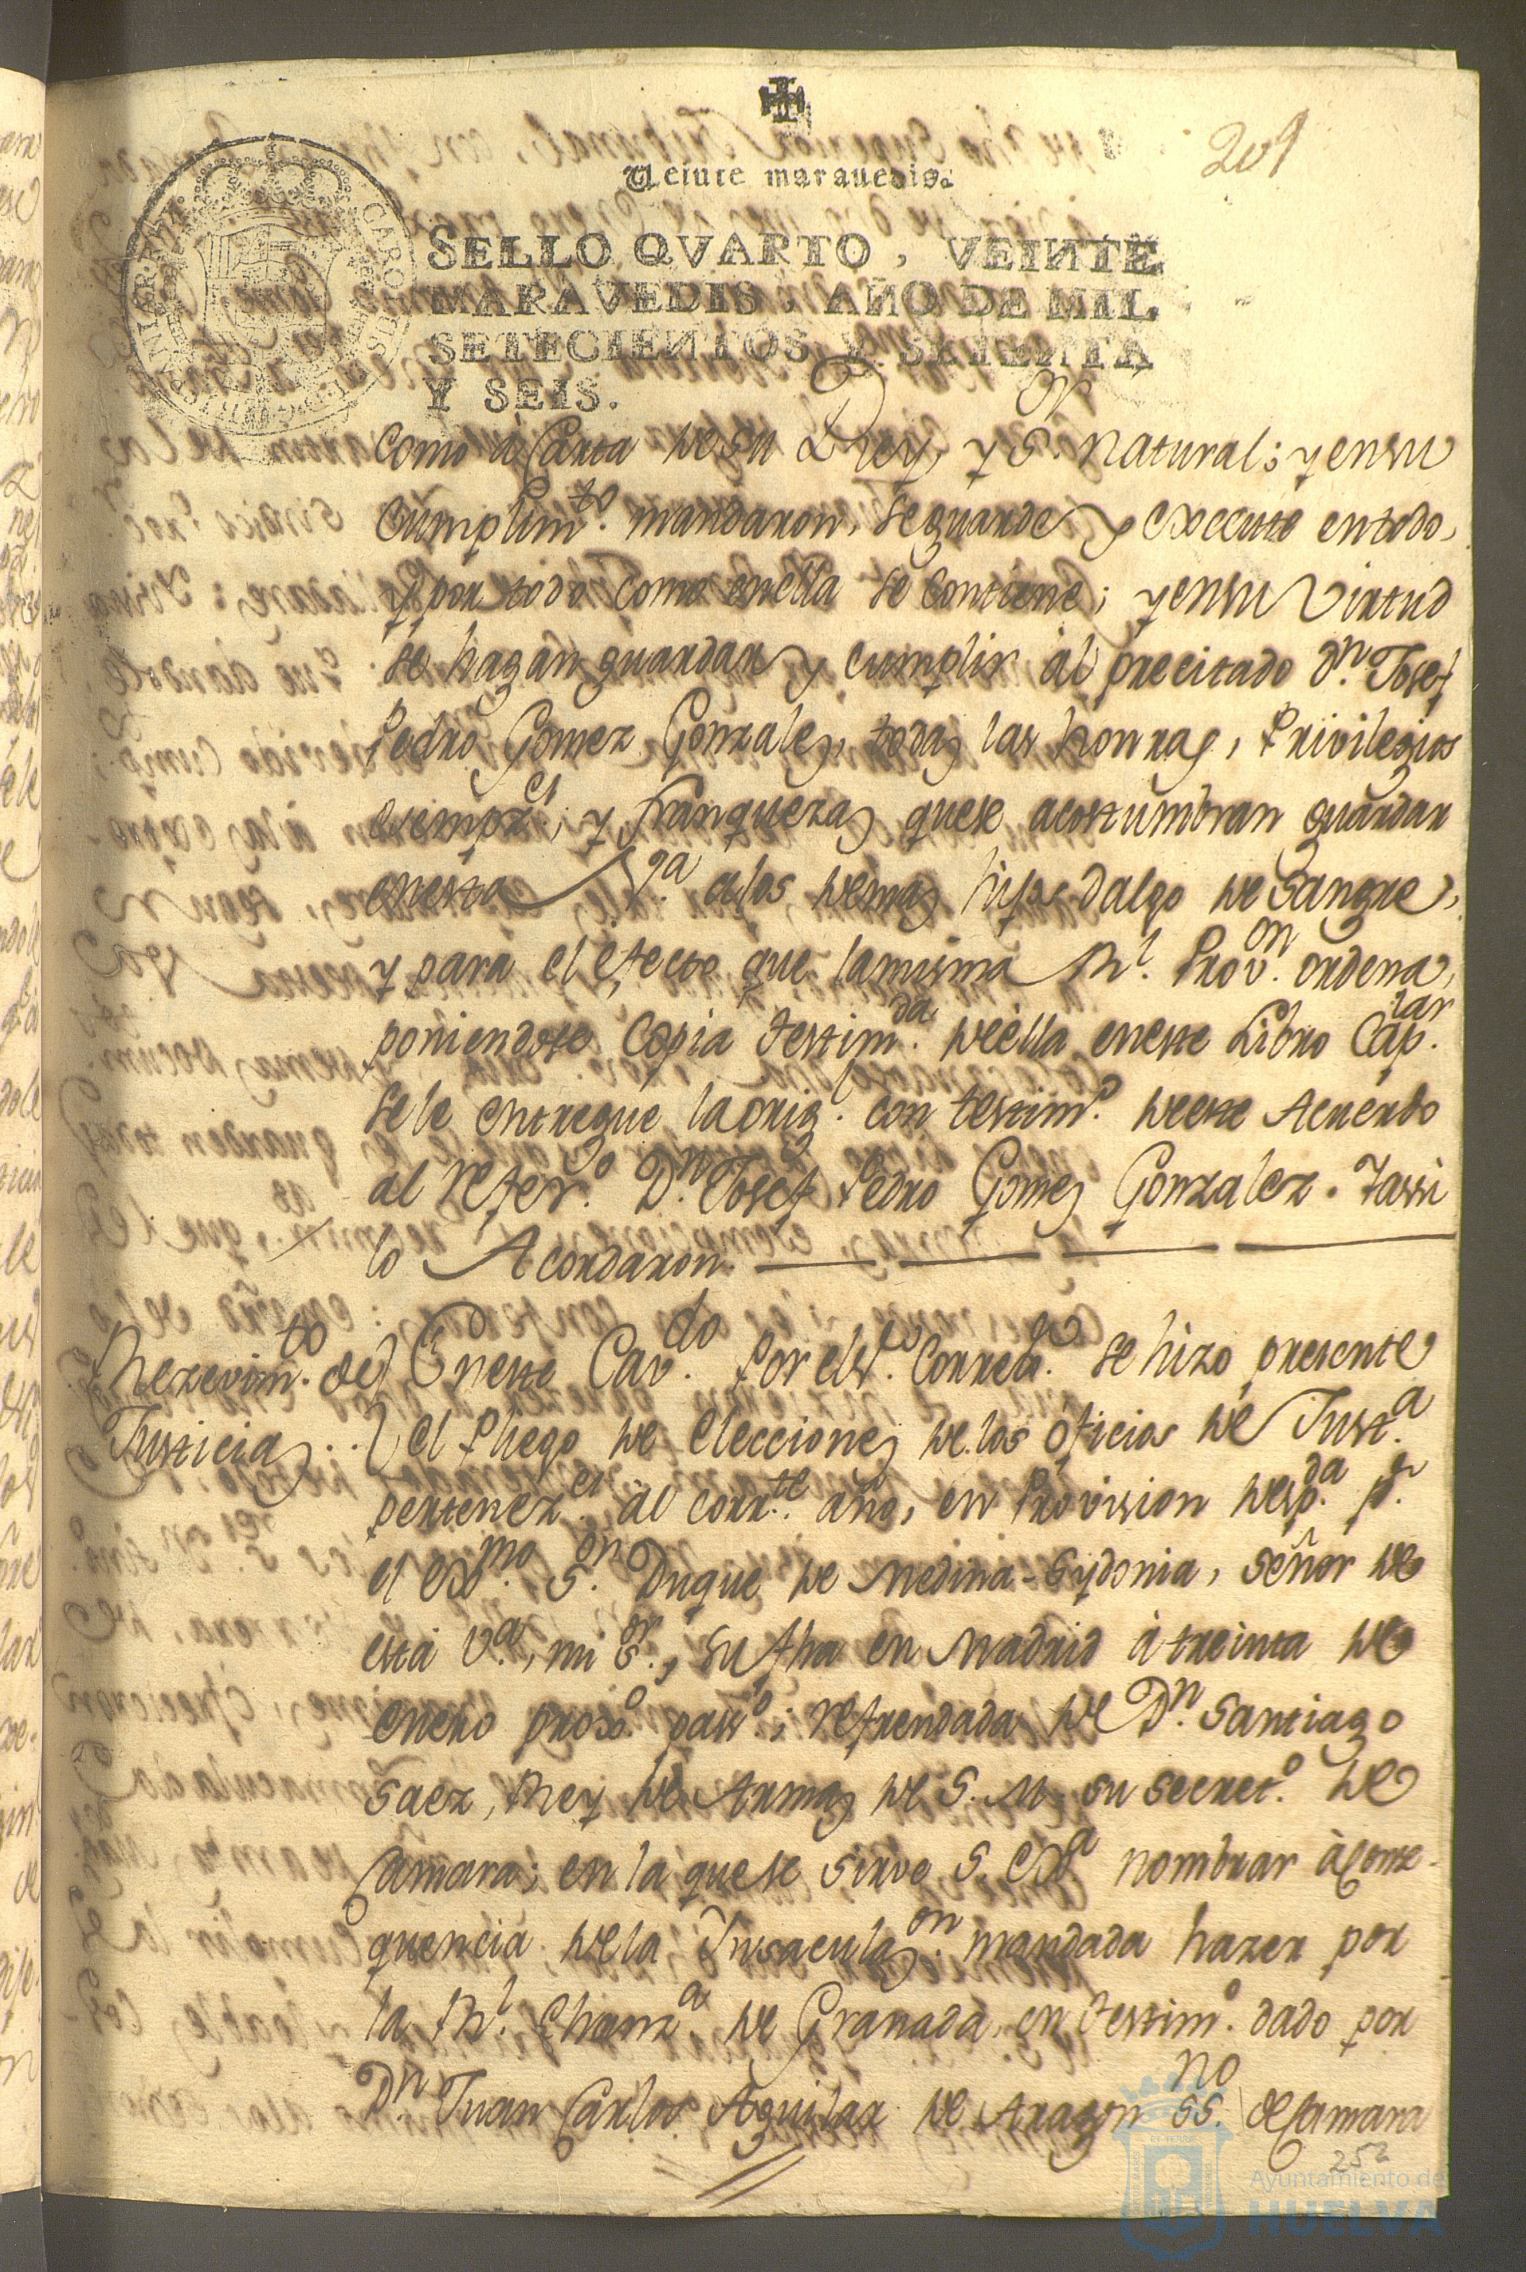 209
Veinte maravedis.
SELLO QVARTO, VEINTE
MARAVEDIS, AÑO DE MIL
SETECIENTOS Y SETENTA
Y SEIS.
como à Carta de su Rey, y S.or natural; y en su
cumplim.to mandaron, se guarde y execute en todo,
y por todo como en ella se contiene; y en su virtud
se hagan guardar y cumplir al precitado D.n Josef
Pedro Gomez Gonzalez, todas las honras, Privilegios
esempz.es y franquezas que se acostumbran guardar
en esta V.ª a los demas hijos dalgo de Sangre,
y para el efecto que la misma R.l Prov.on ordena,
poniendose Copia testim.da de ella en este Libro Cap.lar
se le entregue la orig.l con testim.o de este Acuerdo
al refer.o D.n Josef Pedro Gomez Gonzalez. Y assi
lo Acordaron.
Rezevim.to de
Justicias..
En este Cav.do por el S.or Correx.or se hizo presente
el Pliego de elecciones de los oficios de Just.a
pertenez.es al corr.te año, en Provision desp.da p.r
el Ex.mo S.or Duque de Medina-Sydonia, señor de
esta V.a, mi S.or, su fha en Madrid à treinta de
enero prox.o pass.o; refrendada de D.n Santiago
Saez, Rey de Armas de S. M. su secret.o de
Camara; en la que se sirve S. Ex.a nombrar à conse-
quencia de la Insaculaz.on mandada hazer por
la R.l Chanz.a de Granada, en testim.o dado por
D.n Juan Carlos Aguilar de Aragon ss.no de Camara
252
Ayuntamiento de
HUELVA